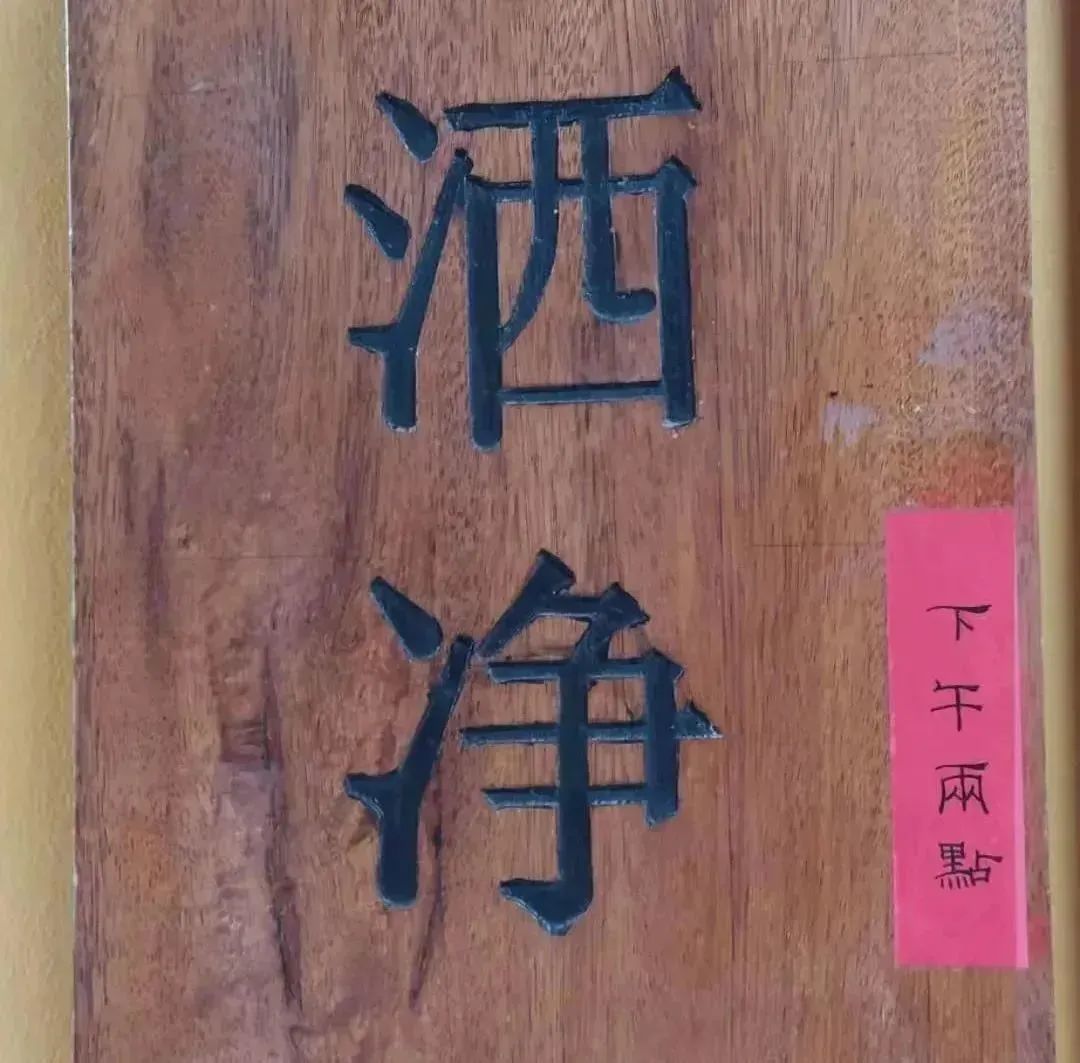 洒净
下午兩點